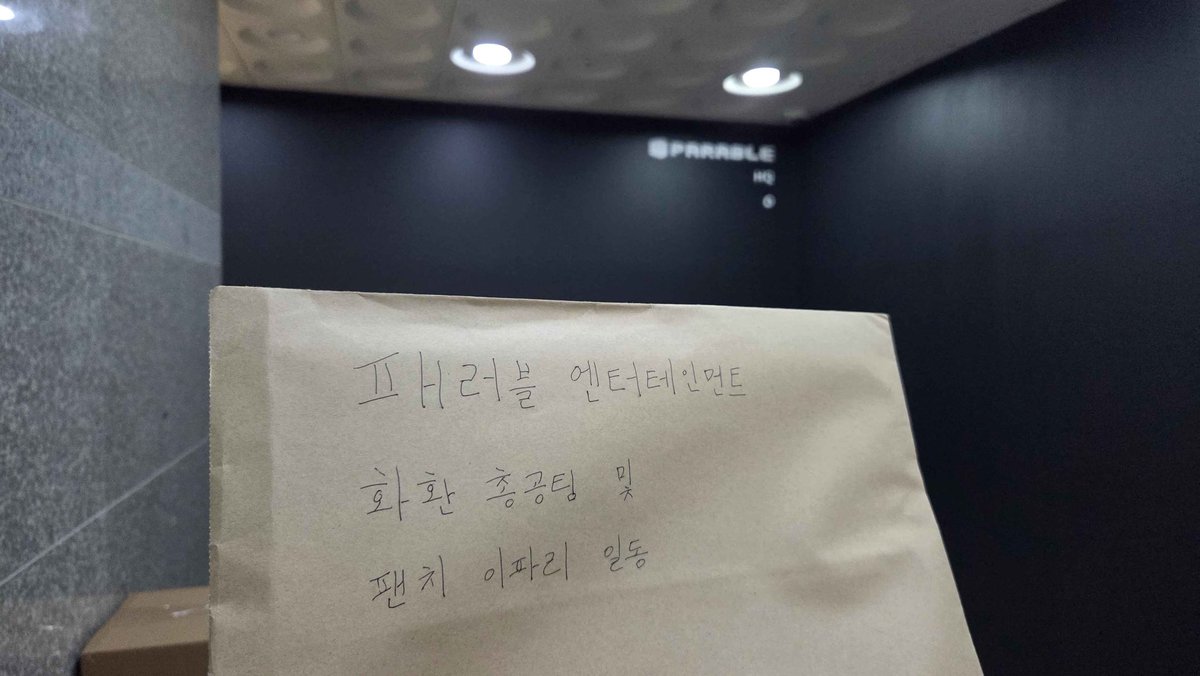 PARABLE
HQ
패러블 엔터테인먼트
화환 총공팀 및
팬치 이파리 일동